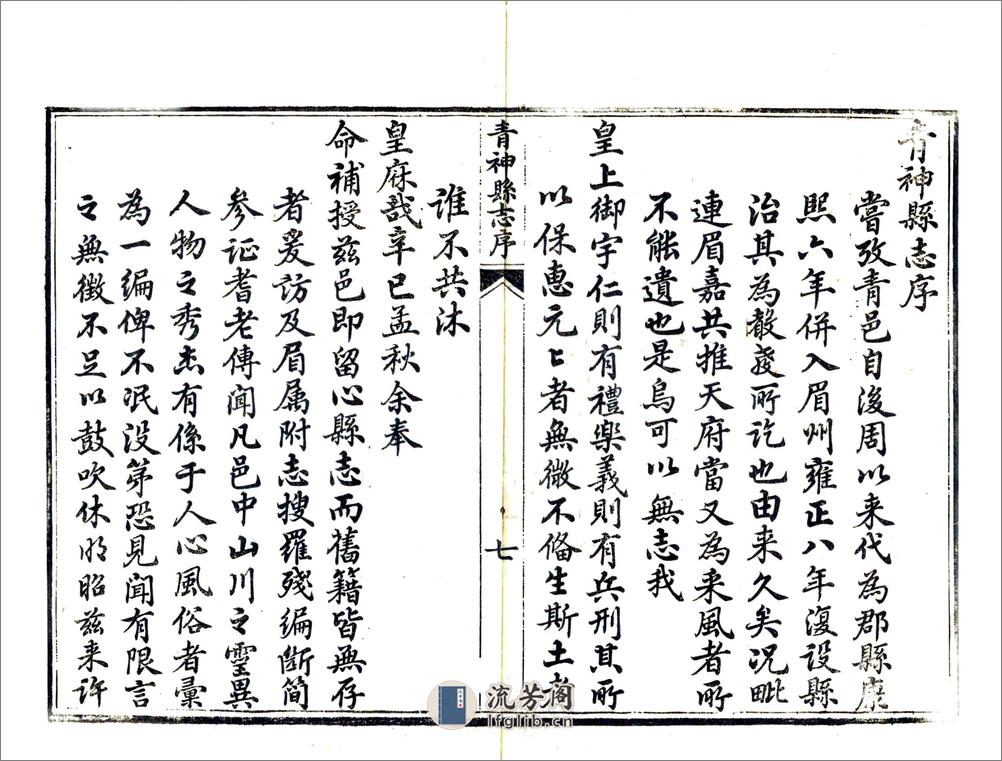 青神縣志序
嘗攷青邑自後周以来代為郡縣康
熙六年併入眉州雍正八年復設縣
治其為教䇿所訖也由来久矣况毗
連眉嘉共推天府當又為来風者所
不能遺也是烏可以無志我
皇上御宇仁則有禮樂義則有兵刑其所
以保惠元〻者無微不俻生斯土者
誰不共沐
皇庥哉辛巳孟秋余奉
命補授兹邑即留心縣志而舊籍皆無存
者爰訪及眉属附志搜羅殘編断簡
参证耆老傳聞凡邑中山川之靈異
人物之秀杰有係于人心風俗者彙
為一編俾不泯没第恐見聞有限言
之無徵不足以鼓吹休明昭兹来許
青神縣志序
七
流芳阁
lfglib.cn